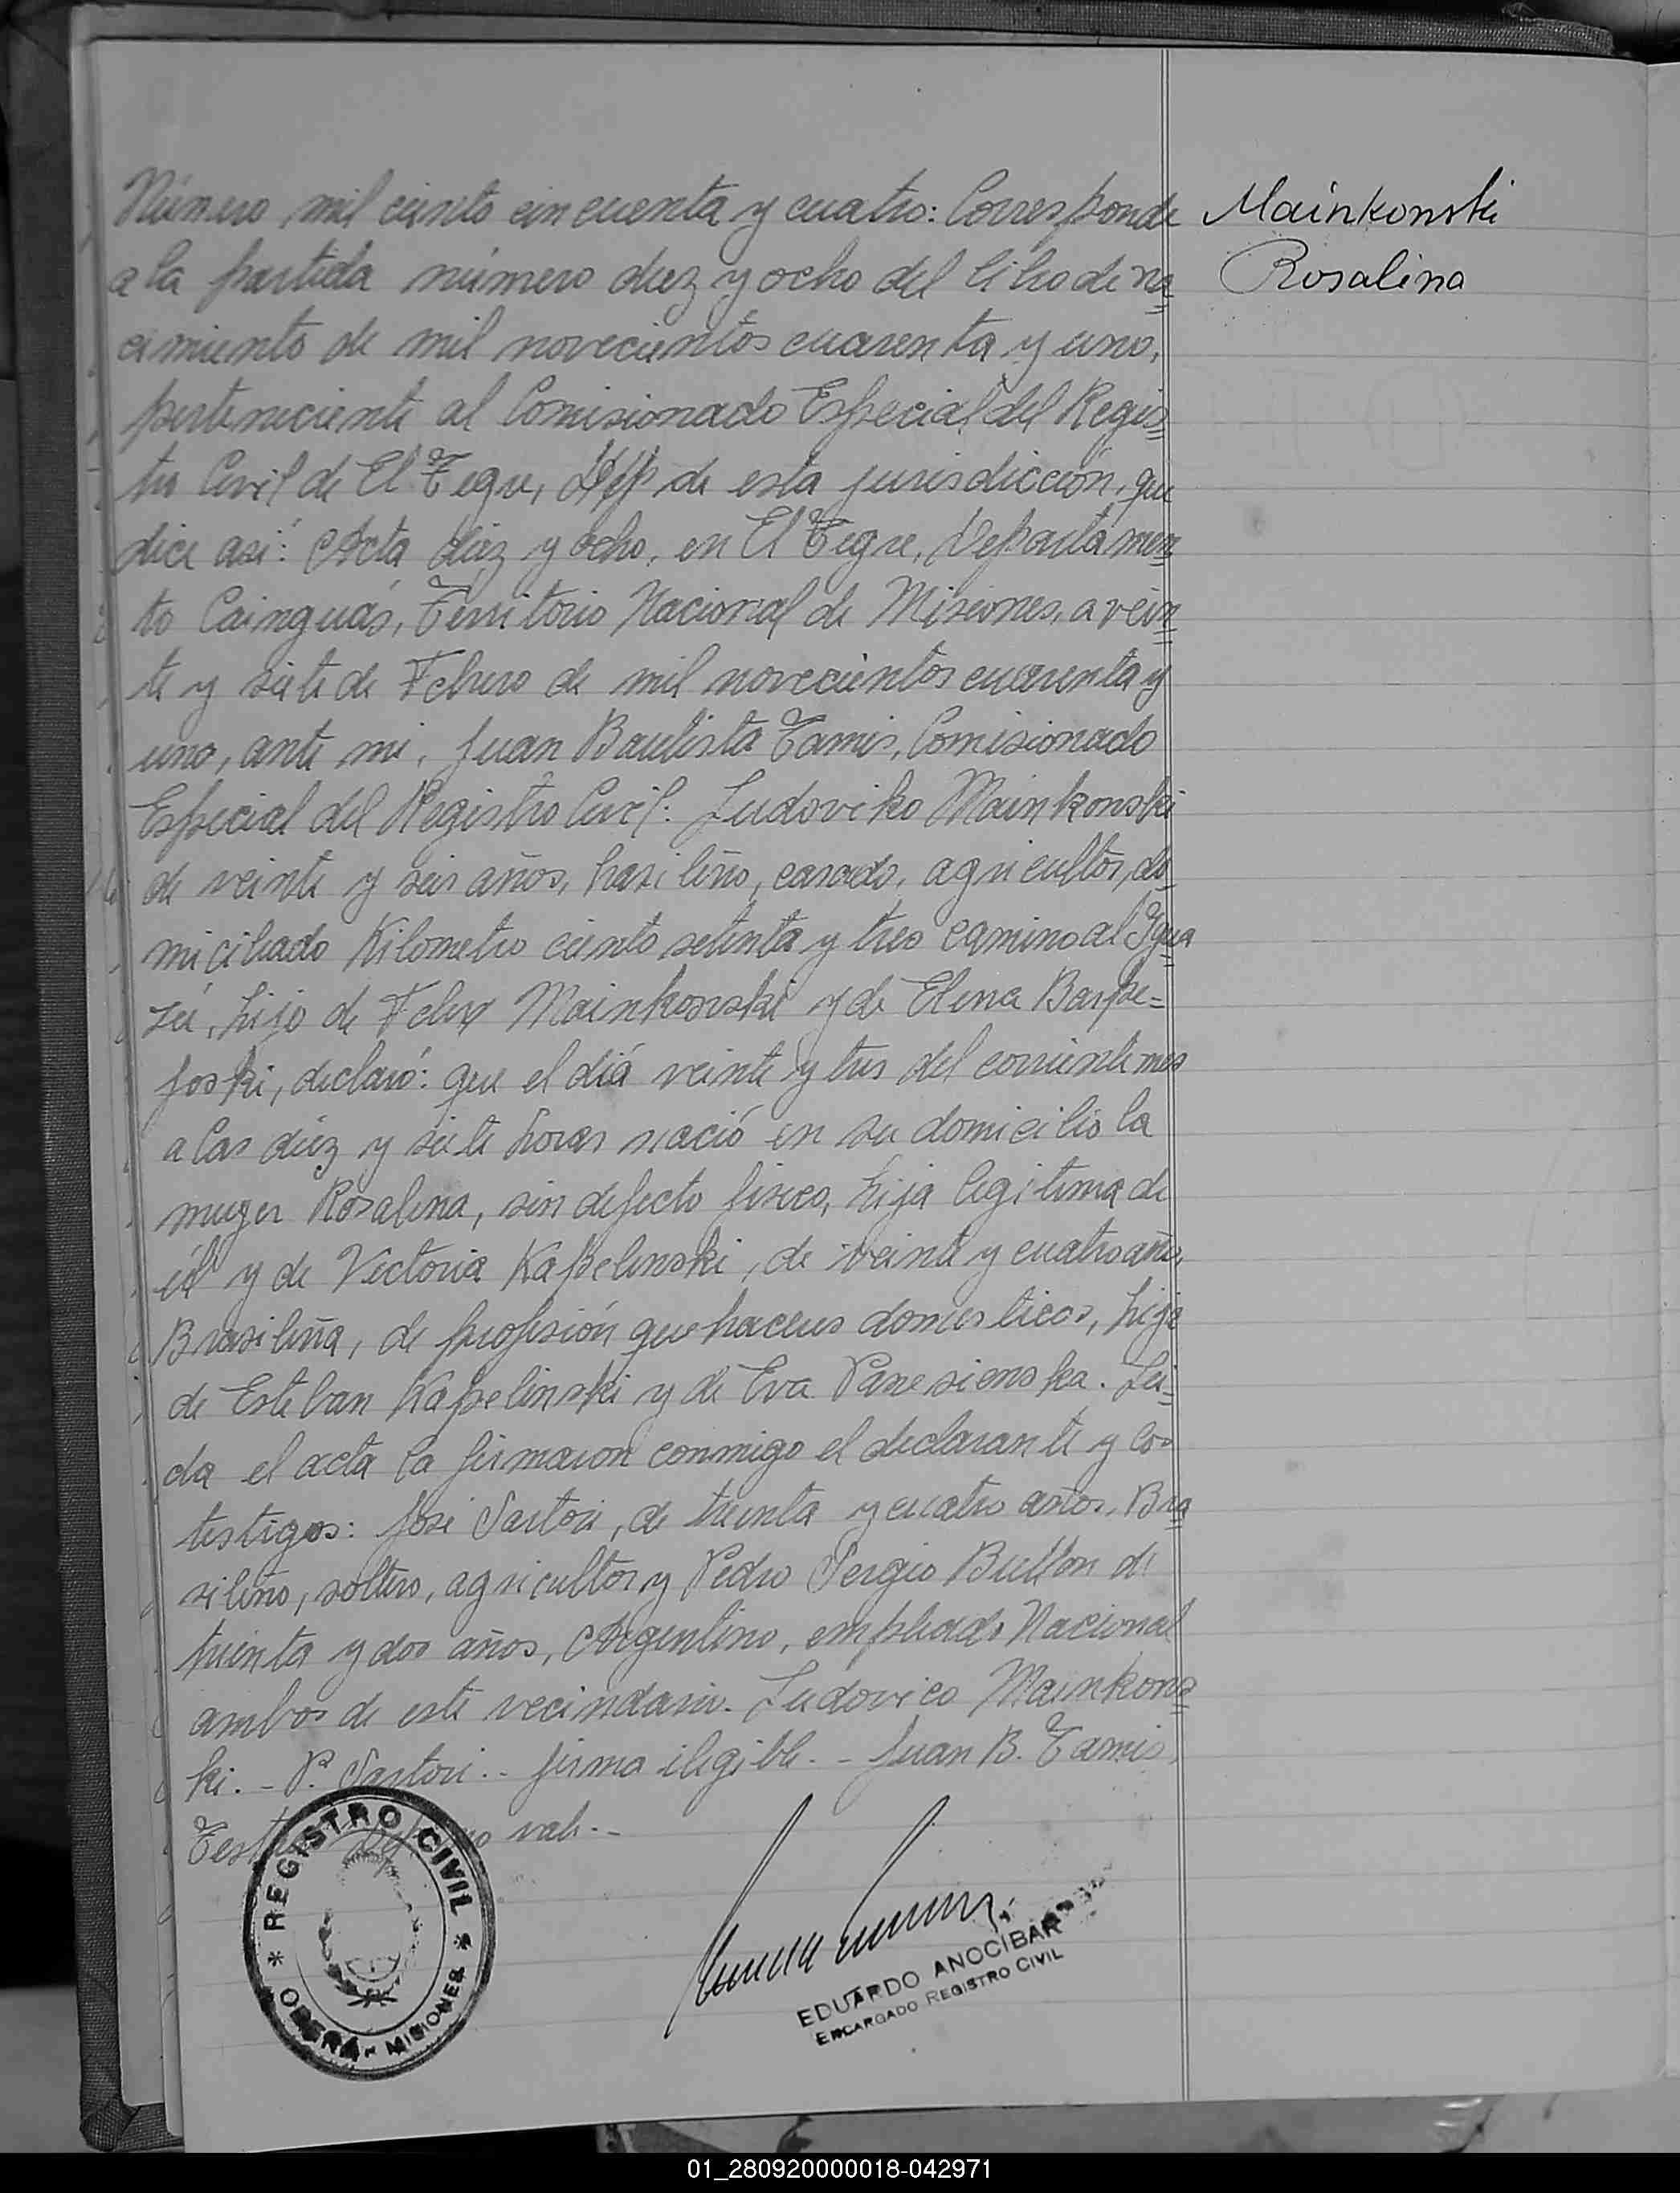 Número mil ciento cincuenta y cuatro: Corresponde
a la partida número diez y ocho del libro de na
cimiento de mil novecientos cuarenta y uno,
perteneciente al Comisionado Especial del Regis
tro Civil de El Tigre, de esta jurisdicción, que
dice así: Acta diez y ocho, en El Tigre, Departamen
to Cainguás, Territorio Nacional de Misiones, a vein
te y siete de Febrero de mil novecientos cuarenta y
uno, ante mi, Juan Bautista Tamis, Comisionado
Especial del Registro Civil: Ludoviko Mainkonski
de veinte y seis años, brasileño, casado, agricultor, do
miciliado Kilometro ciento setenta y tres camino al Igua
zú, hijo de Felix Mainkonski y de Elena Barpe=
foski, declaró: que el diá veinte y tres del corriente mes
a las diez y siete horas nació en su domicilio la
muger Rosalina, sin defecto fisico, hija legitima de
él y de Victoria Kapelinski, de veinte y cuatro años,
Brasileña, de profisión quehaceres domesticos, hija
de Esteban Kapelinski y de Eva Panesienska. Lei-
da el acta la firmaron conmigo el declarante y los
testigos: José Sartori, de treinta y cuatro años, Bra
sileño, soltero, agricultor y Pedro Sergio Bullon de
treinta y dos años, Argentino, empleado Nacional
ambos de este vecindario. Ludovico Mainkons
ki. - P. Sartori. - firma ilegible. - Juan B. Tamis.
no vale. -
Mainkonski
Rosalina
* REGISTRO CIVIL *
OBERÁ - MISIONES
EDUARDO ANOCÍBAR
ENCARGADO REGISTRO CIVIL
01_280920000018-042971